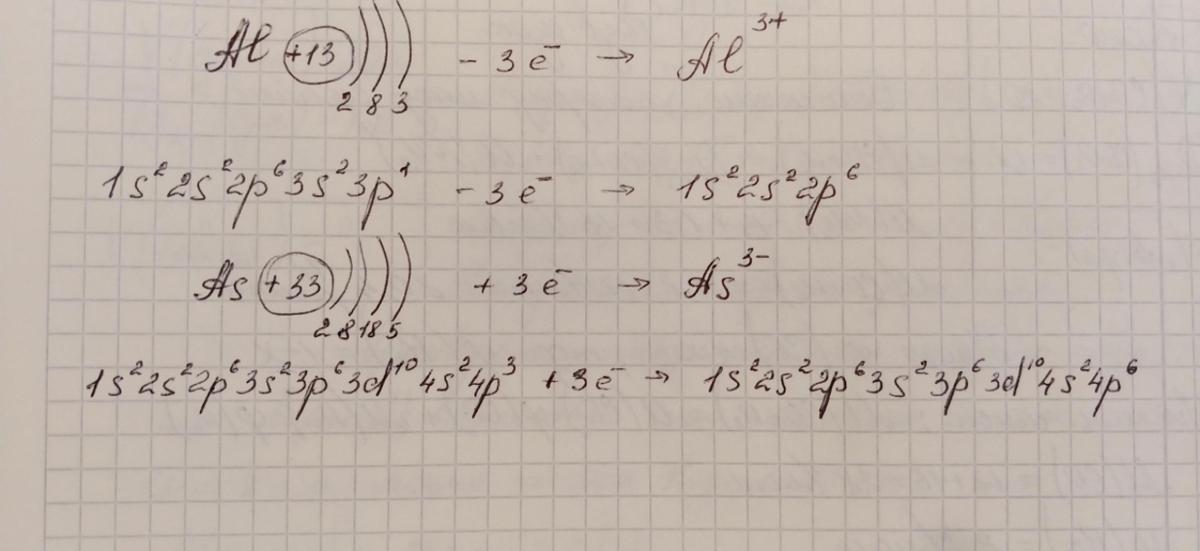 Al +13 ) ) ) - 3 e⁻ → Al³⁺
2 8 3
1s²2s²2p⁶3s²3p¹ - 3 e⁻ → 1s²2s²2p⁶
As +33 ) ) ) ) + 3 e⁻ → As³⁻
2 8 18 5
1s²2s²2p⁶3s²3p⁶3d¹⁰4s²4p³ + 3e⁻ → 1s²2s²2p⁶3s²3p⁶3d¹⁰4s²4p⁶